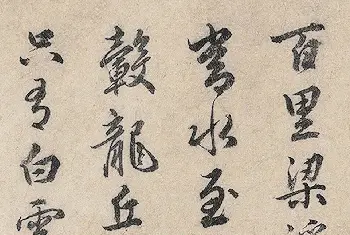 百里梁
水至
龍丘
只有白雲